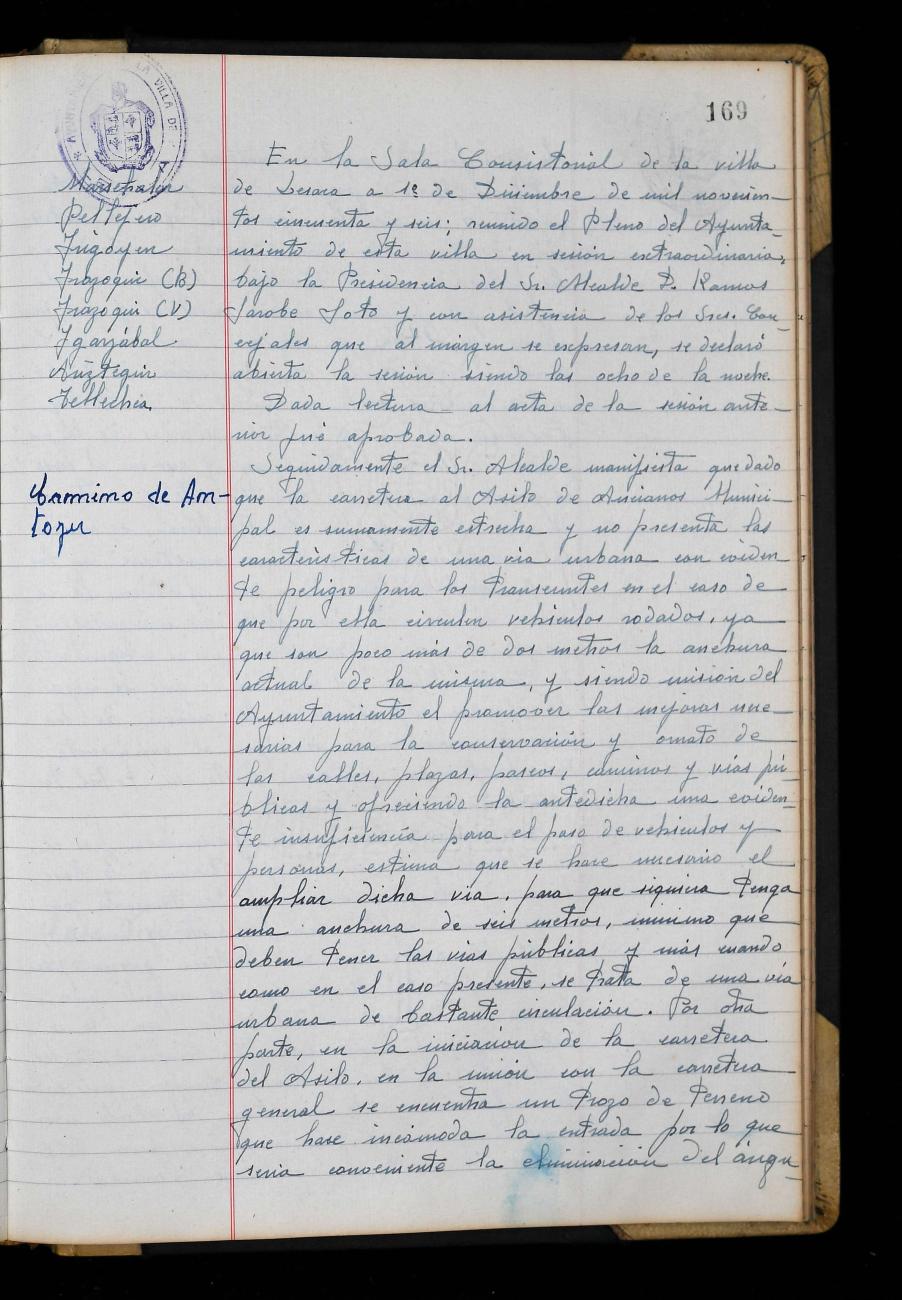 169
AYUNTAMIENTO LA VILLA DE
Marichalar
Pellejero
Irigoyen
Irazoqui (B)
Irazoqui (V)
Igarzábal
Tellechea
En la Sala Consistorial de la villa
de Lesaca a 1º de Diciembre de mil novecien-
tos cincuenta y seis; reunido el Pleno del Ayunta-
miento de esta villa en sesión extraordinaria,
bajo la Presidencia del Sr. Alcalde D. Ramos
Jarobe Soto y con asistencia de los Sres. Con-
cejales que al margen se expresan, se declaró
abierta la sesión siendo las ocho de la noche.
Dada lectura al acta de la sesión ante-
rior fué aprobada.
Camino de An-
tozu
Seguidamente el Sr. Alcalde manifiesta que dado
que la carretera al Asilo de Ancianos Munici-
pal es sumamente estrecha y no presenta las
características de una via urbana con eviden
te peligro para los transeuntes en el caso de
que por ella circulen vehiculos rodados, ya
que son poco más de dos metros la anchura
actual de la misma, y siendo misión del
Ayuntamiento el promover las mejoras nece-
sarias para la conservación y ornato de
las calles, plazas, paseos, caminos y vías pú-
blicas y ofreciendo la antedicha una eviden-
te insuficiencia para el paso de vehiculos y
personas, estima que se hace necesario el
ampliar dicha via, para que siquiera tenga
una anchura de seis metros, minimo que
deben tener las vias públicas y más cuando
como en el caso presente, se trata de una via
urbana de bastante circulación. Por otra
parte, en la iniciación de la carretera
del Asilo, en la unión con la carretera
general se encuentra un trozo de terreno
que hase incómoda la entrada por lo que
seria conveniente la eliminación del ángu-